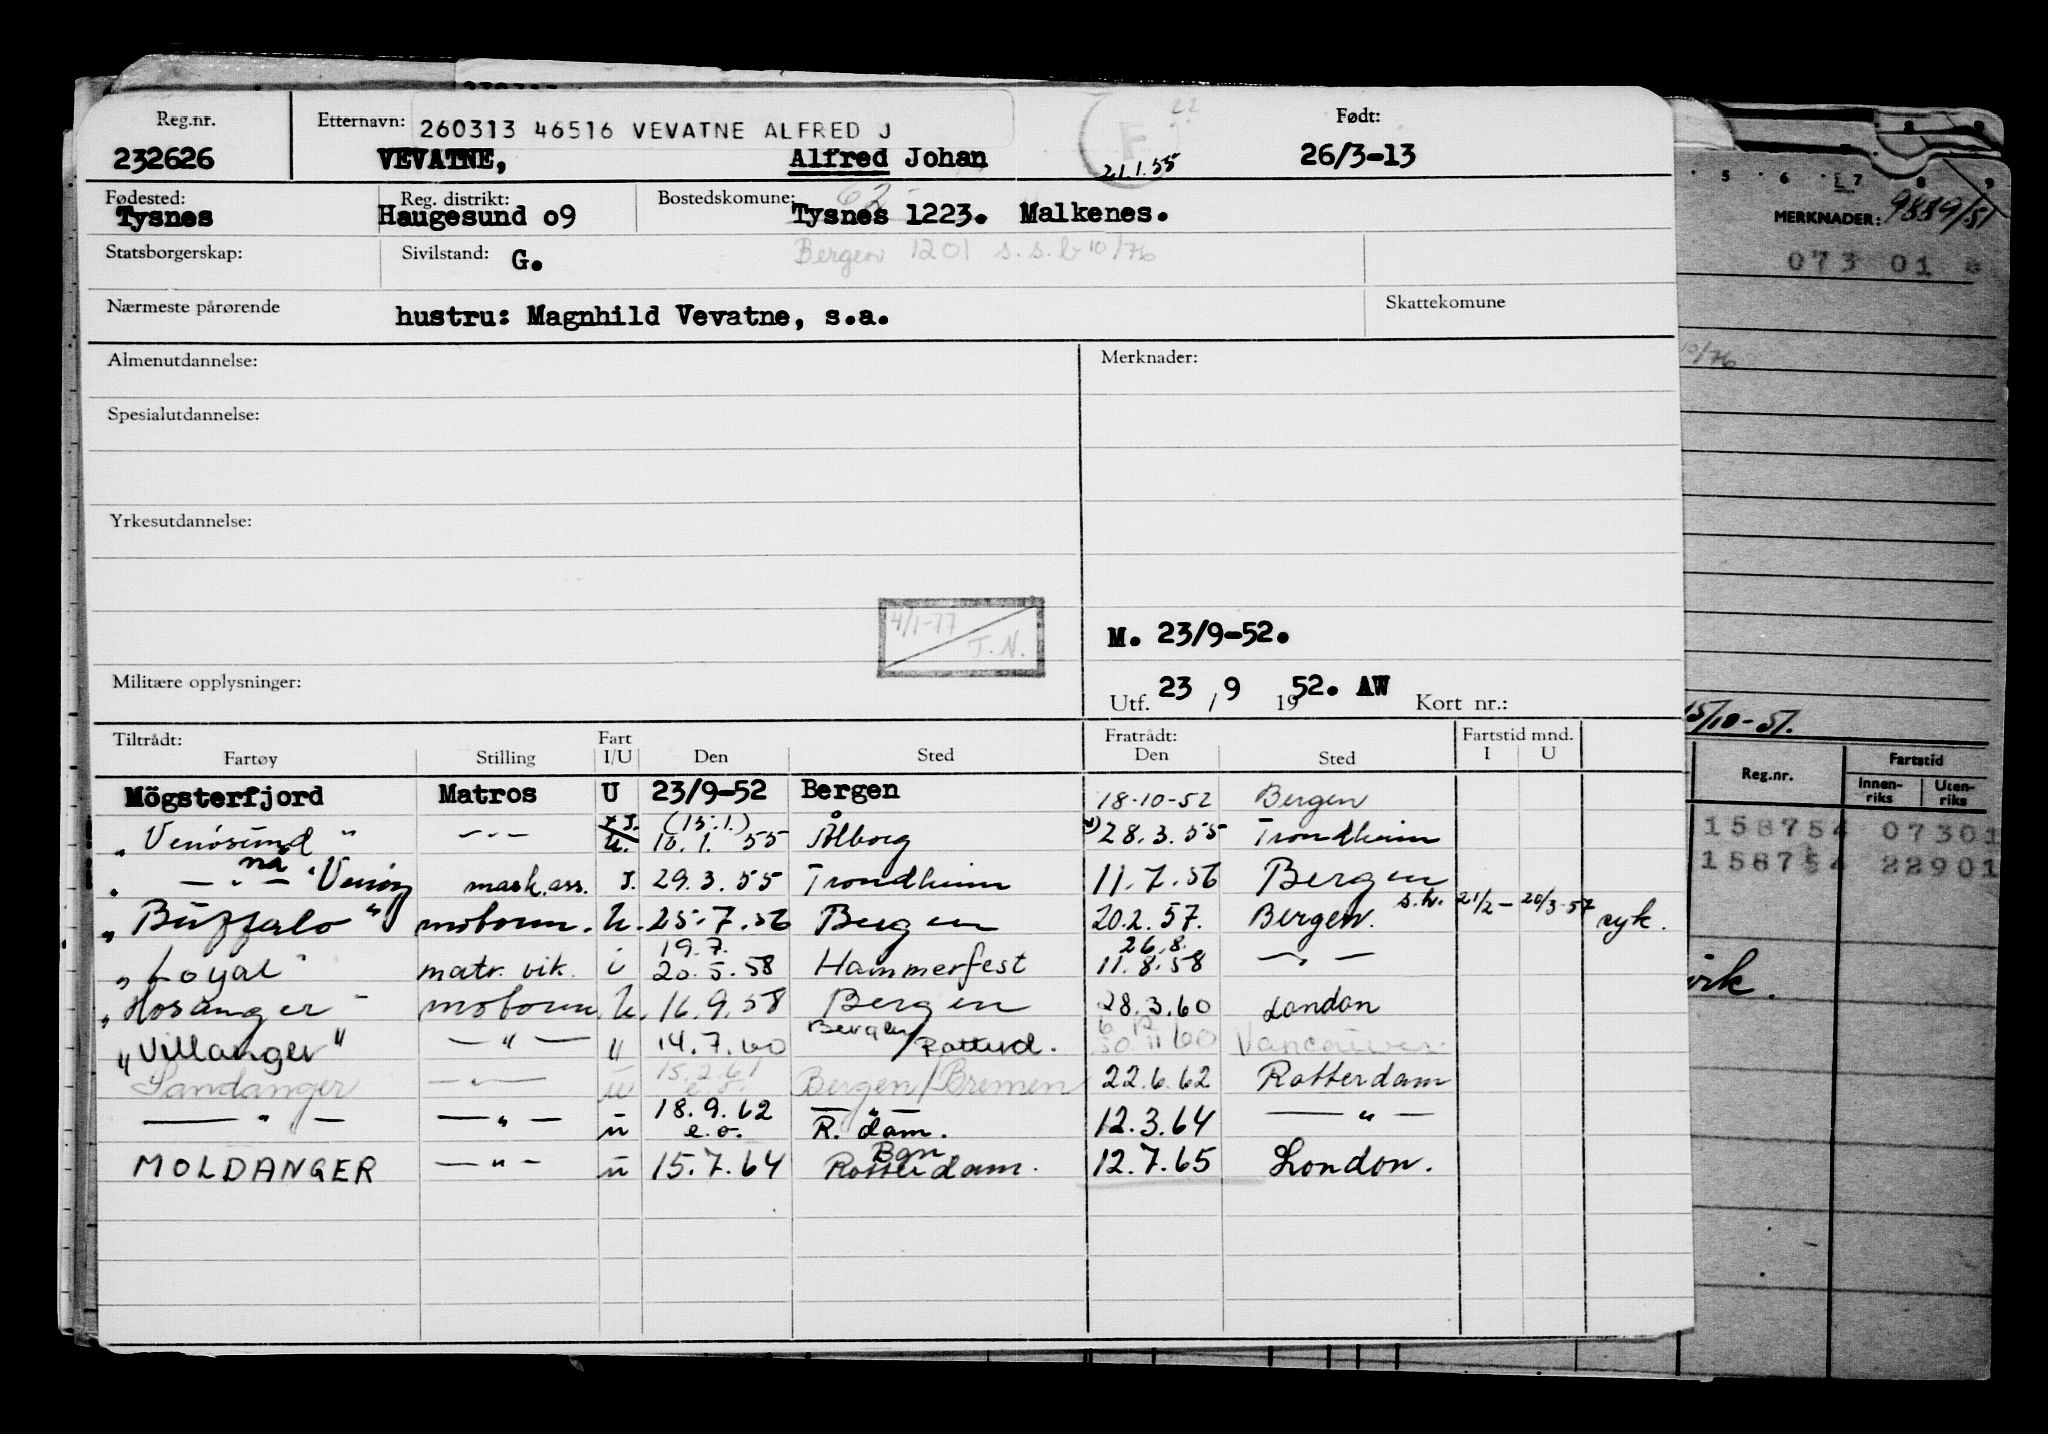 Reg.nr. Etternavn: 260313 46516 VEVATNE ALFRED J Født:
232626 VEVATNE, Alfred Johan 21.1.55 26/3-13
Fødested: Reg. distrikt: Bostedskomune: 62
Tysnes Haugesund o9 Tysnes 1223. Malkenes.
Statsborgerskap: Sivilstand: G. Bergen 1201 s.s.b 10/76
Nærmeste pårørende hustru: Magnhild Vevatne, s.a. Skattekomune
Almenutdannelse: Merknader:
Spesialutdannelse:
Yrkesutdannelse:
4/1-77 T.N.
M. 23/9-52.
Militære opplysninger:
Utf. 23 / 9 19 52. AW Kort nr.:
Tiltrådt: Fart Fratrådt: Fartstid mnd.
Fartøy Stilling I/U Den Sted Den Sted I U
Mögsterfjord Matros U 23/9-52 Bergen 18-10-52 Bergen
(15.1.)
"Venösund" -"- 16.1.55 Ålborg 28.3.55 Trondheim
" -"- nå "Venöy mask.ass. I. 29.3.55 Trondheim 11.7.56 Bergen
"Buffalo" motorm. U. 25.7.56 Bergen 20.2.57. Bergen. s.h. 21/2- 20/3-57 syk.
19.7. 26.8.
"Loyal" matr. vik. i 20.5.58 Hammerfest 11.8.58 -"-
"Hosanger" motorm U. 16.9.58 Bergen 28.3.60 London
"Villanger" -"- " 14.7.60 Bergen/Rotterd. 30.11 60 Vancouver
Sandanger -"- u 15.2.61 Bergen/Bremen 22.6.62 Rotterdam
-"- -"- u 18.9.62 e.o. -"- R.dam. 12.3.64 -"-
MOLDANGER -"- u 15.7.64 Bgn Rotterdam. 12.7.65 London.
5 6 7 8 9
MERKNADER: 9889/51
073 01
10/76
15/10-51.
Reg.nr. Fartstid
Innen-riks Uten-riks
158754 07301
158754 22901
vik.